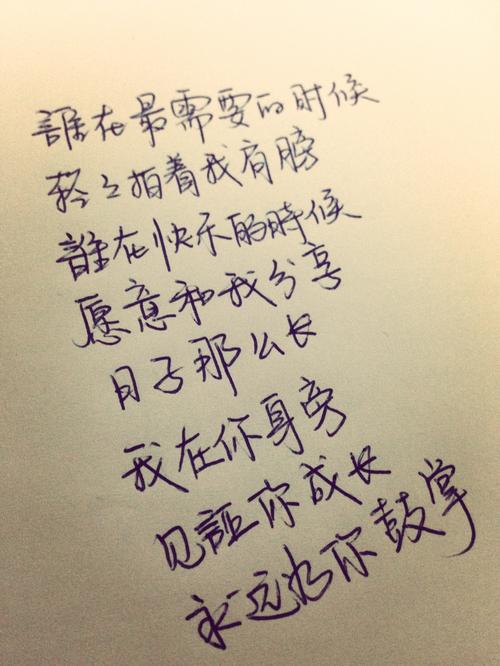 誰在最需要的时候
轻々拍着我肩膀
誰在快乐的時候
愿意和我分享
日子那么长
我在你身旁
见證你成长
永远为你鼓掌